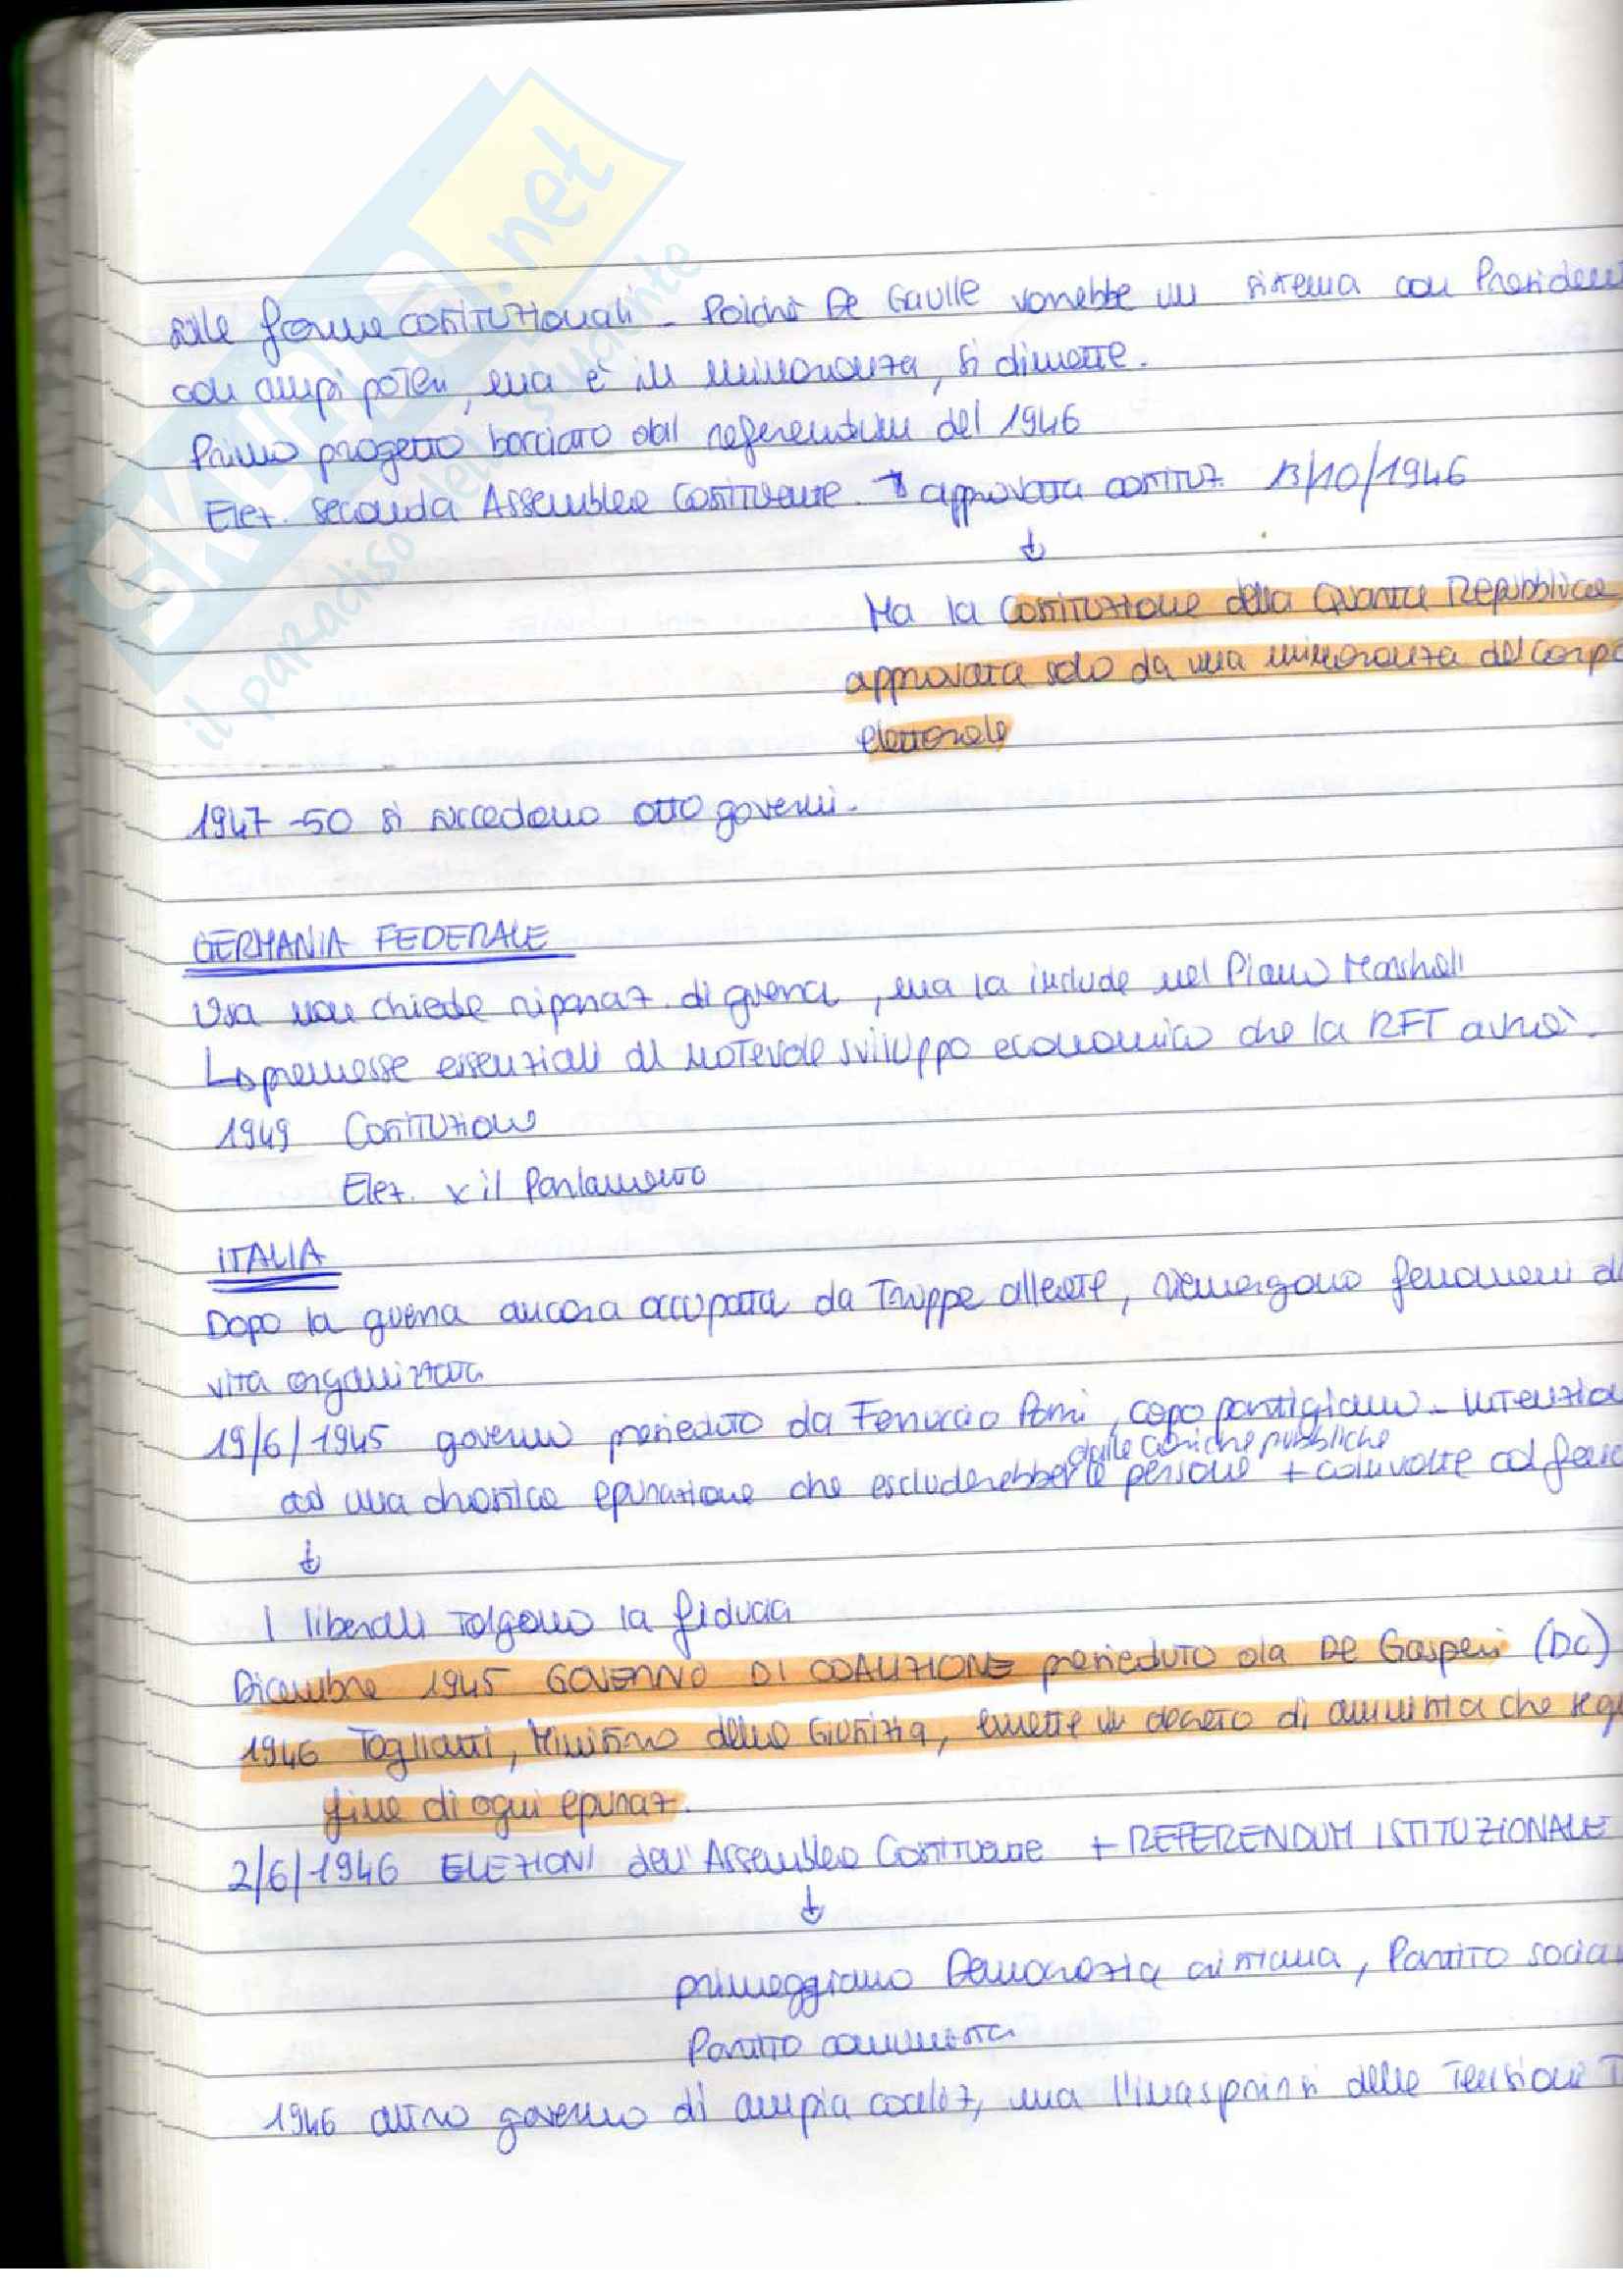 SKUOLA.net
il paradiso dello studente
sulle forme costituzionali. Poichè De Gaulle vorrebbe un sistema con President
con ampi poteri, ma è in minoranza, si dimette.
Primo progetto bocciato dal referendum del 1946
Elez. seconda Assemblea Costituente. → approvata costituz. 13/10/1946
↓
Ma la Costituzione della Quarta Repubblica
approvata solo da una minoranza del corpo
elettorale
1947-50 si succedono otto governi.
GERMANIA FEDERALE
Usa non chiede riparaz. di guerra, ma la include nel Piano Marshall
↳ premesse essenziali al notevole sviluppo economico che la RFT avrà.
1949 Costituzione
Elez. x il Parlamento
ITALIA
Dopo la guerra ancora occupata da truppe alleate, riemergono fenomeni di
vita organizzata
19/6/1945 governo presieduto da Ferruccio Parri, capo partigiano. Intenzio
dalle cariche pubbliche
ad una drastica epurazione che escluderebbe le persone + coinvolte col fasc
↓
I liberali tolgono la fiducia
Dicembre 1945 GOVERNO DI COALIZIONE presieduto da De Gasperi (DC)
1946 Togliatti, Ministro della Giustizia, emette un decreto di amnistia che seg
fine di ogni epuraz.
2/6/1946 ELEZIONI dell'Assemblea Costituente + REFERENDUM ISTITUZIONALE
↓
primeggiano Democrazia cristiana, Partito social
Partito comunista
1946 altro governo di ampia coaliz, ma l'inasprirsi delle tensioni